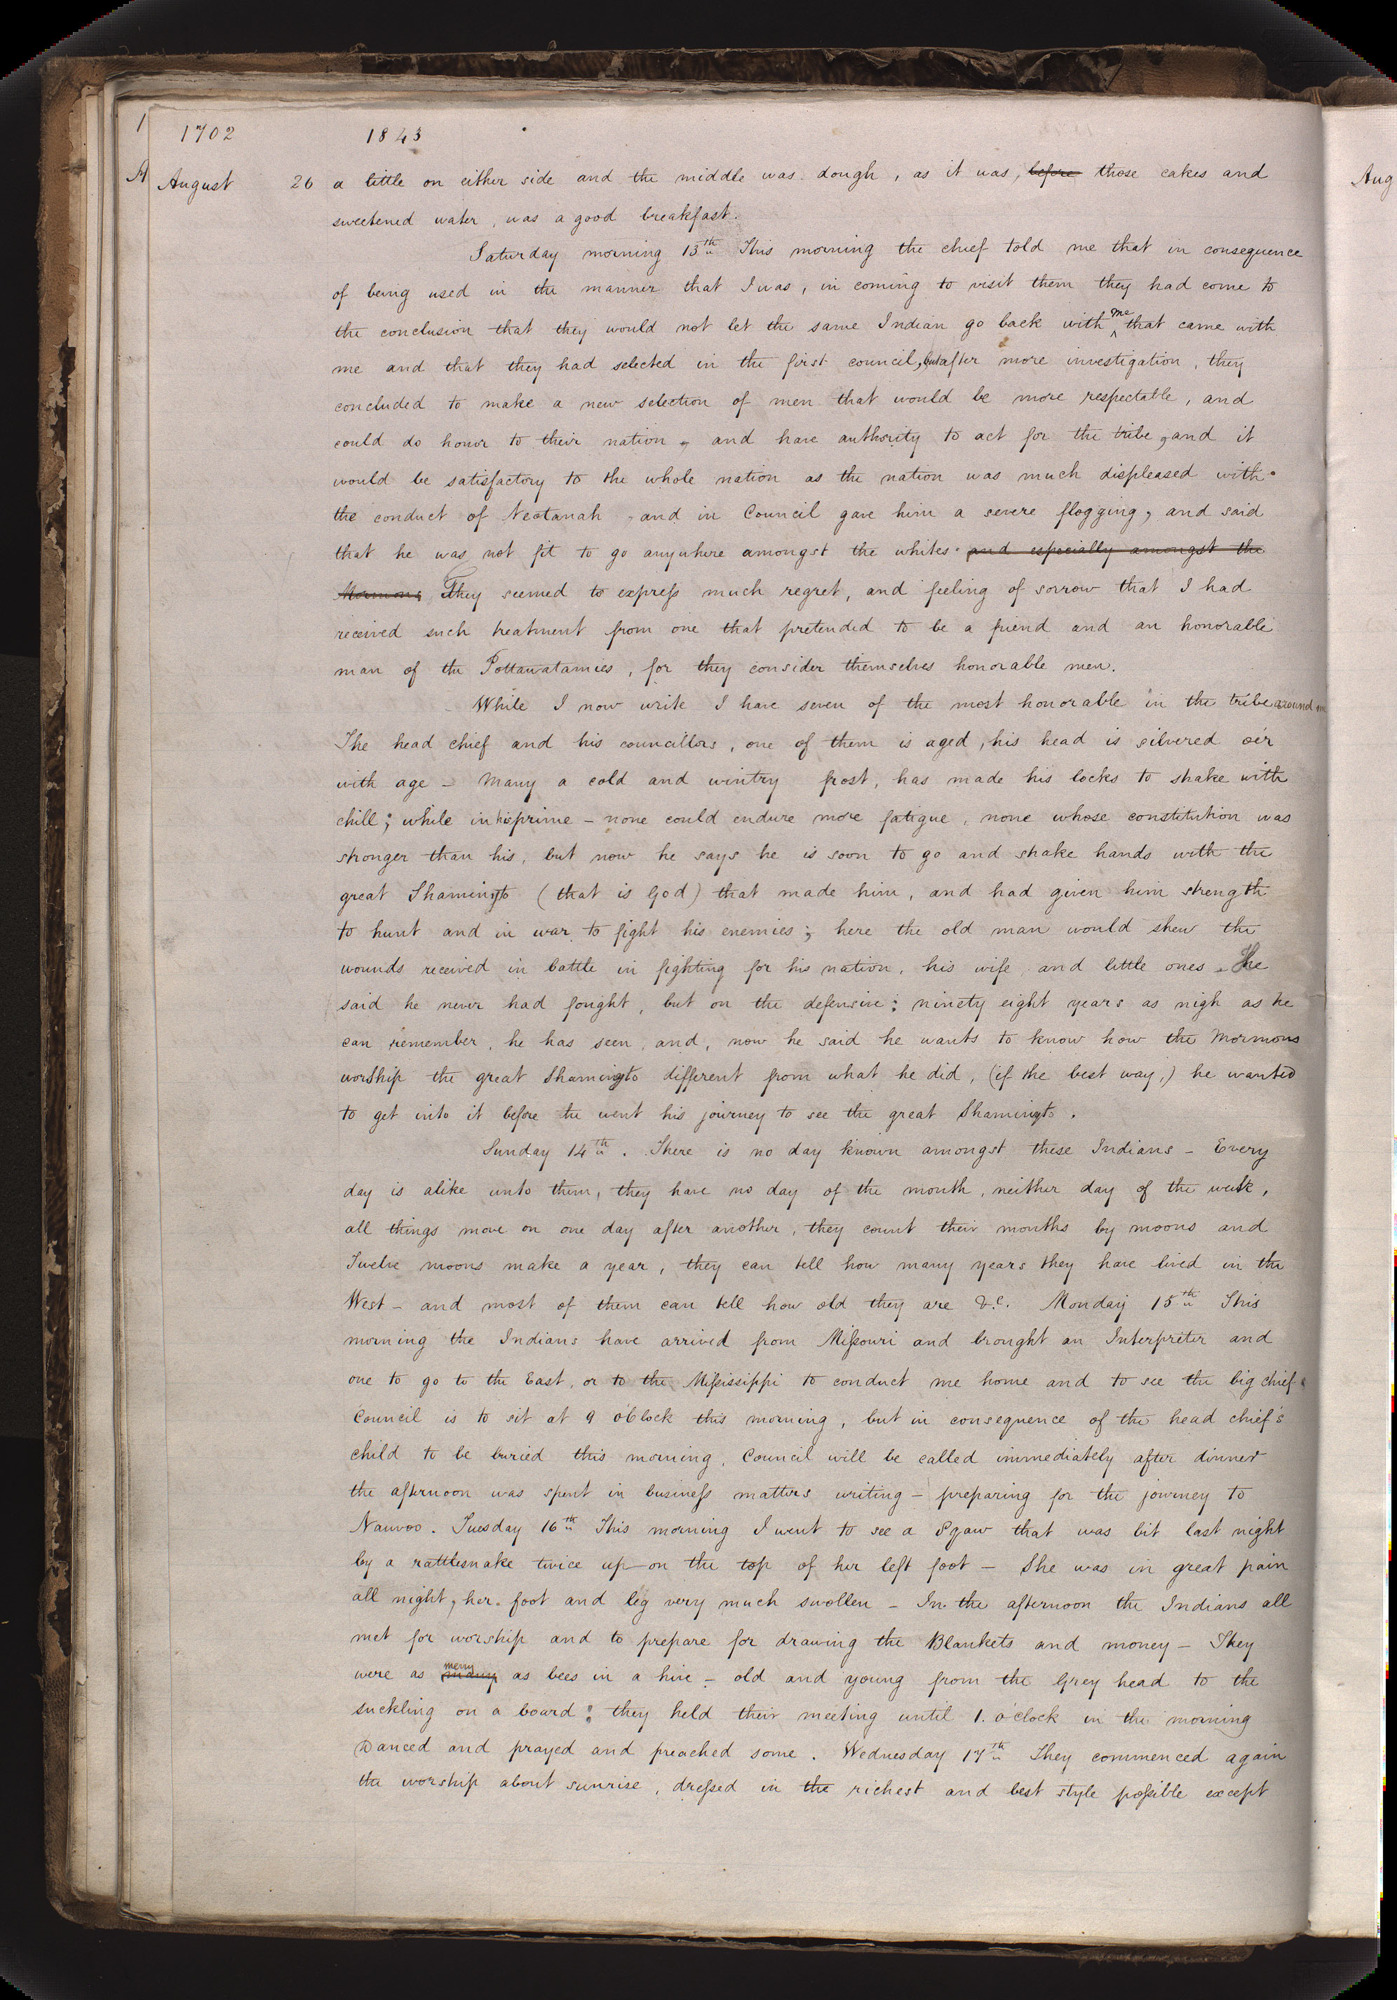 1702 1843
August 26 a little on either side and the middle was dough, as it was, before those cakes and
sweetened water, was a good breakfast.
Saturday morning 13th This morning the chief told me that in consequence
of being used in the manner that I was, in coming to visit them they had come to
the conclusion that they would not let the same Indian go back with me that came with
me and that they had selected in the first council, but after more investigation, they
concluded to make a new selection of men that would be more respectable, and
could do honor to their nation, and have authority to act for the tribe, and it
would be satisfactory to the whole nation as the nation was much displeased with
the conduct of Neotanah, and in Council gave him a severe flogging, and said
that he was not fit to go anywhere amongst the whites. and especially amongst the
Mormons They seemed to express much regret, and feeling of sorrow that I had
received such treatment from one that pretended to be a friend and an honorable
man of the Pottawatamies, for they consider themselves honorable men.
While I now write I have seven of the most honorable in the tribe around me
The head chief and his councillors, one of them is aged, his head is silvered oér
with age – Many a cold and wintry frost, has made his locks to shake with
chill; while in his prime – none could endure more fatigue, none whose constitution was
stronger than his, but now he says he is soon to go and shake hands with the
great Shamingto (that is God) that made him, and had given him strength
to hunt and in war to fight his enemies; here the old man would shew the
wounds received in battle in fighting for his nation, his wife and little ones. He
said he never had fought, but on the defensive; ninety eight years as nigh as he
can remember, he has seen, and, now he said he wants to know how the Mormons
worship the great Shamingto different from what he did, (if the best way,) he wanted
to get into it before he went his journey to see the great Shamingto.
Sunday 14th. There is no day known amongst these Indians – Every
day is alike unto them, they have no day of the month, neither day of the week,
all things move on one day after another, they count their months by moons and
Twelve moons make a year, they can tell how many years they have lived in the
West – and most of them can tell how old they are &c. Monday 15th This
morning the Indians have arrived from Missouri and brought an Interpreter and
one to go to the East, or to the Mississippi to conduct me home and to see the big chief.
Council is to sit at 9 o'Clock this morning, but in consequence of the head chief's
child to be buried this morning, Council will be called immediately after dinner
the afternoon was spent in business matters writing – preparing for the journey to
Nauvoo. Tuesday 16th This morning I went to see a Sqaw that was bit last night
by a rattlesnake twice up on the top of her left foot – She was in great pain
all night, her foot and leg very much swollen – In the afternoon the Indians all
met for worship and to prepare for drawing the Blankets and money – They
were as merry as bees in a hive – old and young from the Grey head to the
suckling on a board; they held their meeting until 1. o'clock in the morning
Danced and prayed and preached some. Wednesday 17th They commenced again
the worship about sunrise, dressed in the richest and best style possible except
Aug